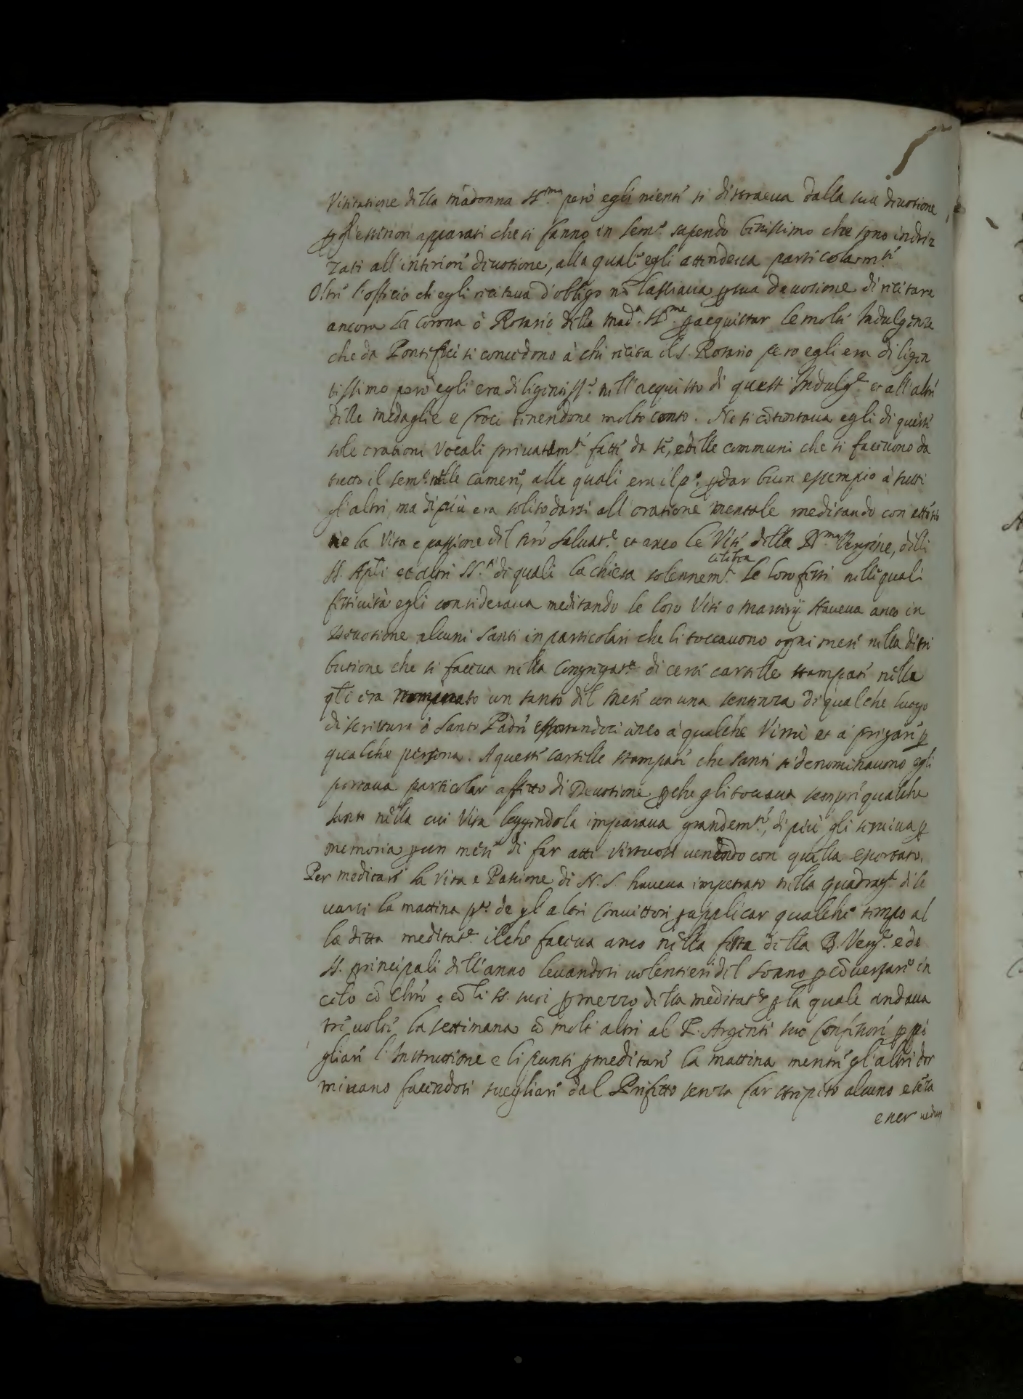 Visitatione della madonna SS.ma però egli mentre si distraeva dalla sua divotione
p gl'esteriori apparati che si fanno in sem.o sapendo benissimo che sono indriz
zati all'interiore divotione, alla qual egli attendeva particolarm.te
Oltre l'officio ch'egli recitava d'obligo nō lasciava p sua devotione di recitare
ancora la corona ò Rosario della Mad.a SS.ma p acquistar le molte Indulgenze
che da Pontefici si concedono à chi recita il S. Rosario pero egli era diligen
tissimo però egli era diligentiss.o nell'acquisto di queste Indulg.e et all'altre
delle medaglie e Croci tenendone molto conto. Ne si cōtentava egli di queste
sole orationi Vocali privatam.te fatte da se, e delle communi che si facevono da
tutto il sem.o nelle Camere, alle quali era il p.o p dar buon essempio à tutti
gl'altri, ma di più era solito darsi all'oratione mentale meditando con attētio
ne la Vita e passione del nrō Salvat.e et anco le Vite della B.ma Vergine, delli
SS. Apli et altri SS.ti di quali la chiesa solennem.te celebra le loro feste nelle quali
festività egli considerava meditando le loro Vite o martirij Haveva anco in
Devotione alcuni Santi in particolare che li toccavono ogni mese nella distri
butione che si faceva nella Congregat.e di certe cartelle stampate nelle
qli era nominato un santo del mese con una sentenza di qualche luogo
di scrittura ò Santi Padri essortandoci anco à qualche Virtù et à pregare p
qualche persona. A queste cartelle stampate che santi si denominavono egli
portava particolar affetto di Devotione p che gli toccava sempre qualche
santo nella cui Vita leggendola imparava grandem.te, di più gli serviva p
memoria p un mese di far atti virtuosi vencendo con quella esportato.
Per meditare la Vita e Passione di N. S. haveva impetrato nella quadrag.a di le
varsi la mattina p.a de gl'altri Convittori p applicar qualche tempo al
la detta meditat.e ilche faceva anco nelle feste della B. Verg.e e de
SS. principali dell'anno levandosi volentieri del sonno p cōversare in
celo cō Chrō e cō li SS. suoi p mezzo della meditat.e p la quale andava
tre volte la settimana cō molti altri al P. Argenti suo Confessore p pi
gliare l'Instruttione e li punti p meditare la mattina mentre gl'altri dor
mivano facendosi svegliare dal Prefetto senza far strepito alcuno e sēza
esser